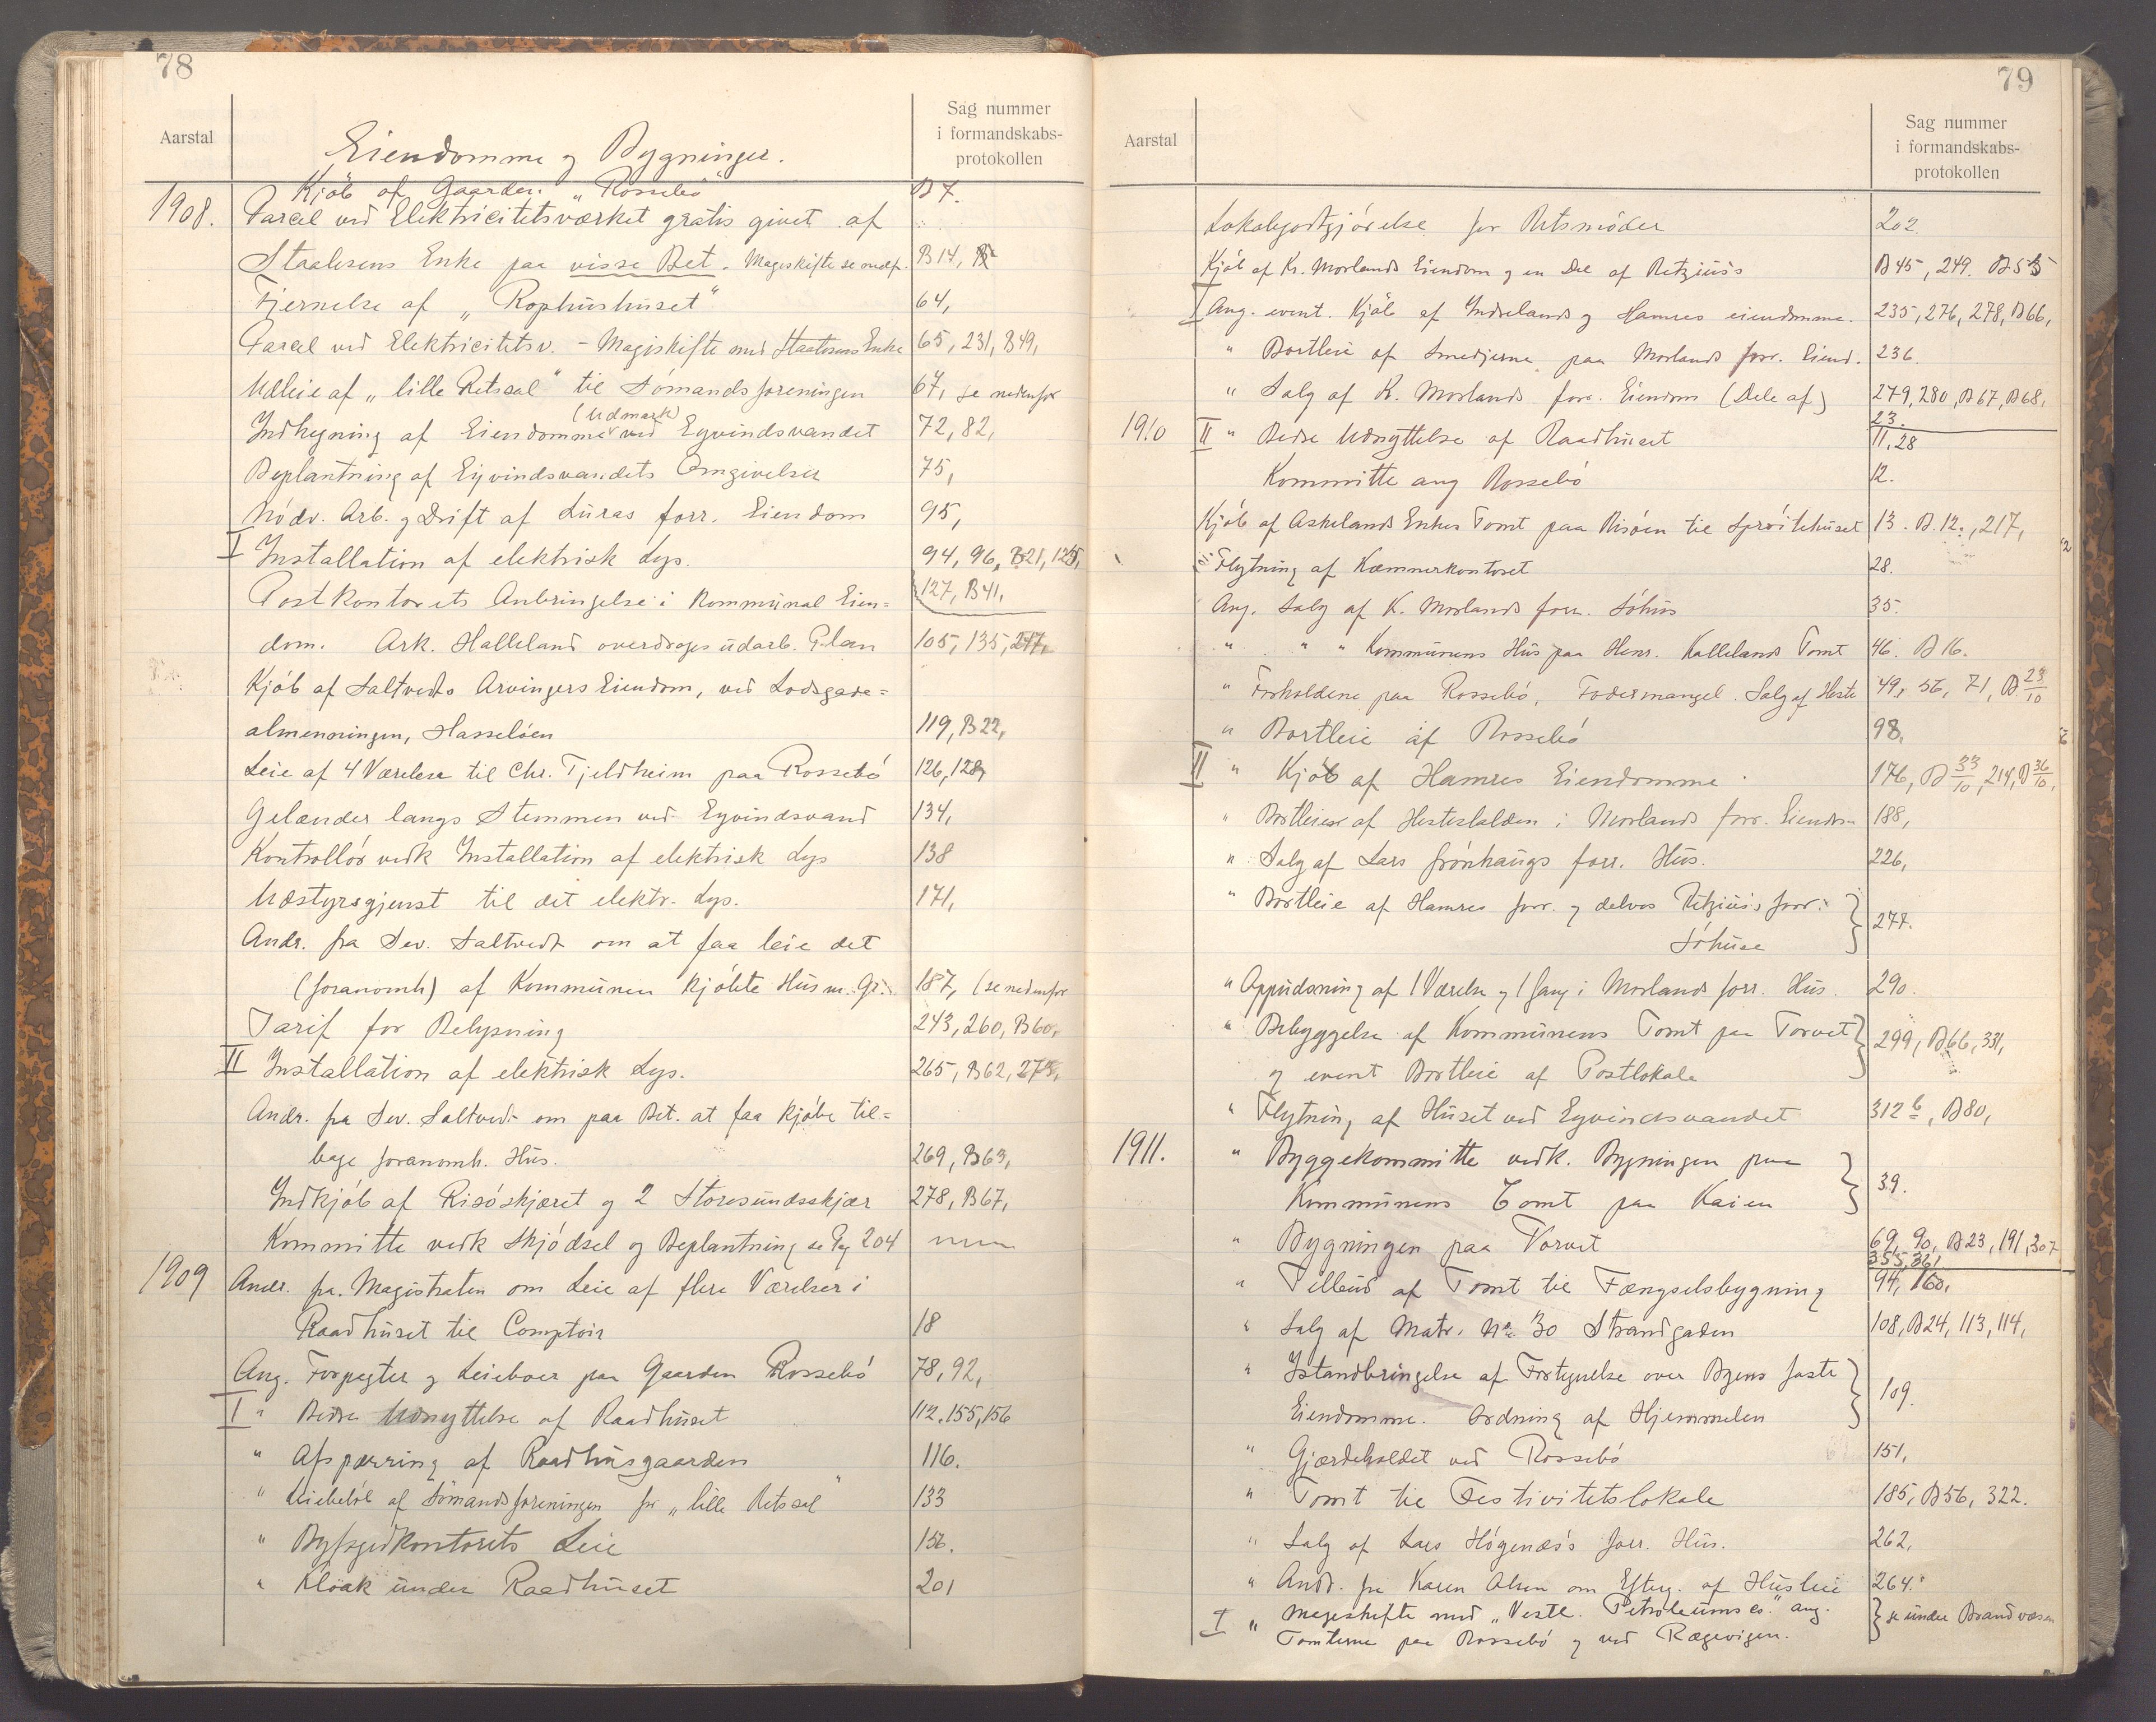 78
Aarstal
Eiendomme og Bygninger.
Sag nummer
i formandskabs-
protokollen
Kjöb af Gaarden "Rossebö" B 7.
1908. Parcel ved Elektricitetsværket gratis givet af
Staalesens Enke paa visse Bet. Mageskifte se nedf. B14,
Fjernelse af "Rophushuset" 64,
Parcel ved Elektricitetsv. - Mageskifte med Staalesens Enke 65, 231, B49,
Udleie af "lille Retssal" til Sömandsforeningen 67, se nedenfor
(Udmark)
Indhegning af Eiendomme ved Eyvindsvandet 72, 82,
Beplantning af Eyvindsvandets Omgivelser 75,
Nödv. Arb. og Drift af Luras forr. Eiendom 95,
I Installation af elektrisk Lys. 94, 96, B21, 125,
127, B41,
Postkontorets Anbringelse i Kommunal Eien=
dom. Ark. Halleland overdrages udarb. Plan 105, 135, 247,
Kjöb af Saltvedts Arvingers Eiendom, ved Lodsgade=
almenningen, Hasselöen 119, B22,
Leie af 4 Værelser til Chr. Tjeldheim paa Rossebö 126, 128,
Gelænder langs Stemmen ved Eyvindsvand 134,
Kontrollör vedk Installation af elektrisk Lys 138
Udstyrsgjenst til det elektr. Lys. 171,
Andr. fra Sev. Saltvedt om at faa leie det
(forannvnh) af Kommunen kjöbte Hus m. Gr. 187, (se nedenfor
Tarif for Belysning 243, 260, B60,
II Installation af elektrisk Lys. 265, B62, 273,
Andr. fra Sev. Saltvedt om paa Bet. at faa kjöbe til=
bage forannvnh. Hus. 269, B63,
Indkjöb af Risöskjæret og 2 Storesundsskjær 278, B67,
Kommitte vedk Skjödsel og Beplantning se Pag 204
1909 Andr. fra Magistraten om Leie af flere Værelser i
Raadhuset til Comptoir 18
Ang. Forpagter og Leieboer paa Gaarden Rossebö 78, 92,
I " Bedre Udnyttelse af Raadhuset 112, 155, 156
" Afspærring af Raadhusgaarden 116.
" Leiebelöb af Sömandsforeningen for "lille Retssal" 133
" Byfogedkontorets Leie 156.
" Kloak under Raadhuset 201
79
Aarstal
Sag nummer
i formandskabs-
protokollen
Lokalegodtgjörelse for Retsmöder 202
Kjöb af Kr. Morlands Eiendom og en Del af Retzius's B45, 249. B55
I Ang. event. Kjöb af Indrelands og Hamres eiendomme. 235, 276, 278, B66,
" Bortleie af Smedjerne paa Morlands forr. Eiend. 236.
" Salg af K. Morlands forr. Eiendom (Dele af) 279, 280, B67, B68,
23.
1910 II " Bedre Udnyttelse af Raadhuset 11, 28
Kommitte ang Rossebö 12.
Kjöb af Askelands Enkes Tomt paa Risöen til Spröitehuset 13. B.12., 217,
Flytning af Kæmnerkontoret 28.
Ang. Salg af K. Morlands forr. Söhus 35.
" " " Kommunens Hus paa Henr. Kallelands Tomt 46. B16.
" Forholdene paa Rossebö, Fodermangel. Salg af Heste 49, 56, 71, B 23/10
" Bortleie af Rossebö 98,
II " Kjöb af Hamres Eiendomme. 176, B 33/10, 214, B 36/10,
" Bortleie af Hestestalden i Morlands forr. Eiendom 188,
" Salg af Lars Grönhaugs forr. Hus. 226,
" Bortleie af Hamres forr. og delvis Retzius's forr.
Söhuse 277.
" Oppudsning af 1 Værelse og 1 Gang i Morlands forr. Hus. 290.
" Bebyggelse af Kommunens Tomt paa Torvet
og event Bortleie af Postlokale 299, B66, 331,
" Flytning af Huset ved Eyvindsvandet 312 b, B80,
1911. " Byggekommitte vedk. Bygningen paa
Kommunens Tomt paa Kaien 39.
" Bygningen paa Torvet 69, 90, B23, 191, 307
355, 361
" Tilbud af Tomt til Fængselsbygning 94, 160,
" Salg af Matr. No 30 Strandgaden 108, B24, 113, 114,
" Istandbringelse af Fortegnelse over Byens faste
Eiendomme. Ordning af Hjemmelen 109.
" Gjærdeholdet ved Rossebö 151,
" Tomt til Festivitetslokale 185, B56, 322.
" Salg af Lars Högenæs's forr. Hus. 262,
" Andr. fra Karen Olsen om Efterg. af Husleie 264.
I " Mageskifte med "Vestl. Petroleums co." ang.
Tomterne paa Rossebö og ved Rægevigen. se under Brandvæsen